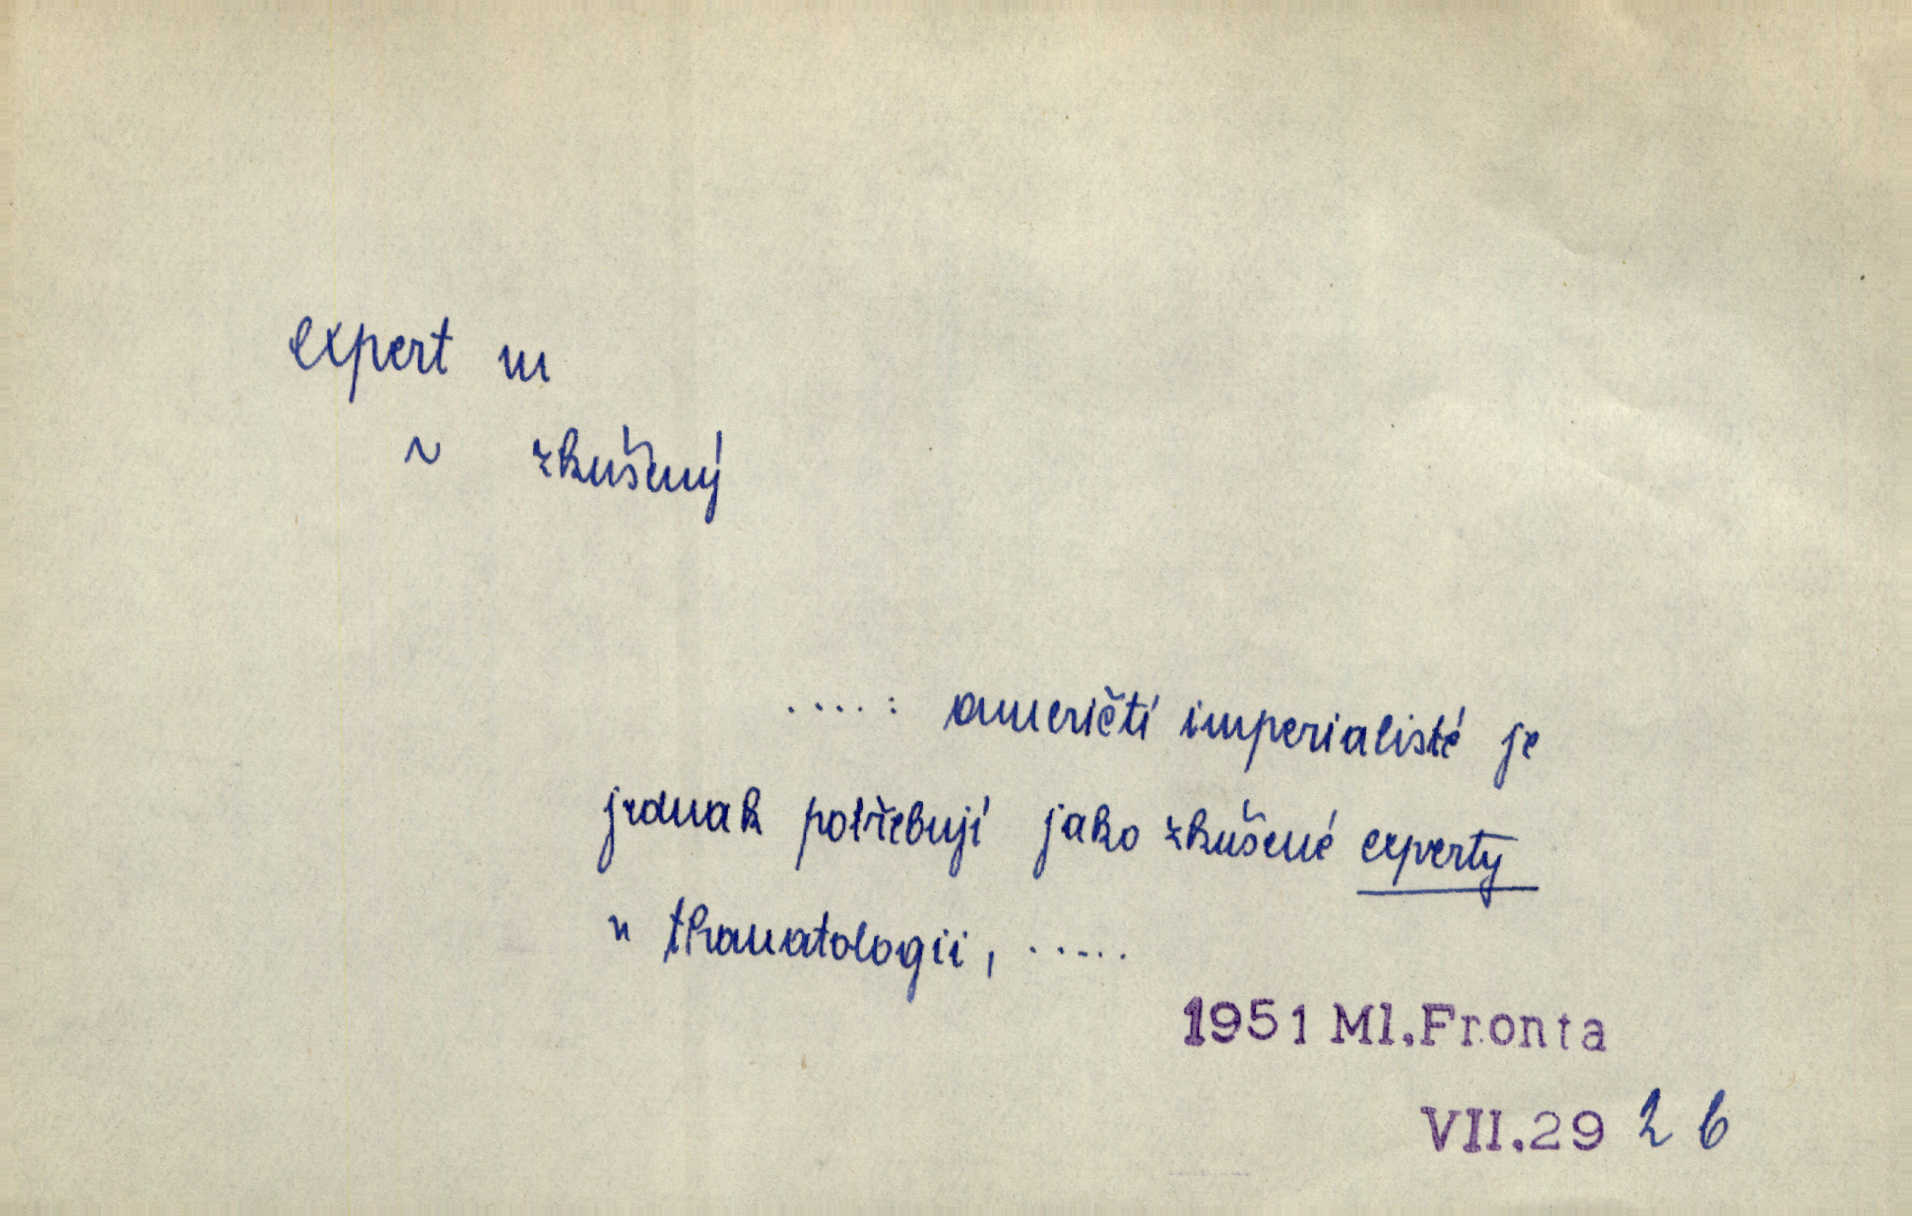 expert m
~ zkušený
.....: američtí imperialisté je
jednak potřebují jako zkušené experty
v thanatologii, .....
1951 Ml.Fronta
VII.29 2 6